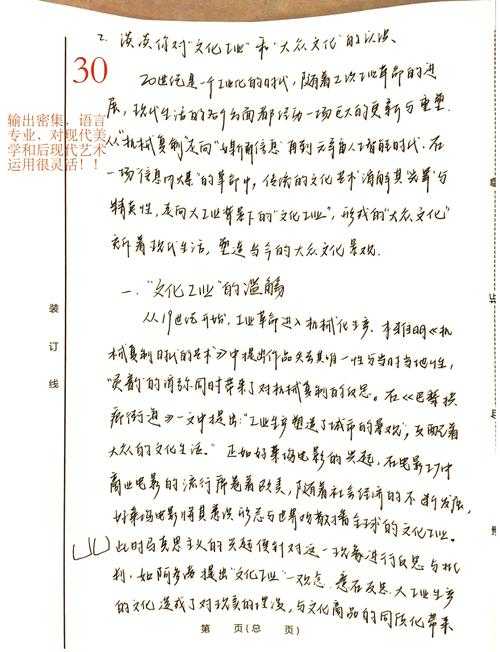 2. 谈谈你对"文化工业"和"大众文化"的认识、
30
输出密集，语言
专业，对现代美
学和后现代艺术
运用很灵活！！
20世纪是一个工业化的时代，随着工业革命的进
展，现代生活的各个方面都经历一场巨大的更新与重塑.
从"机械复制"走向"信息"再到元宇宙人工智能时代. 在
一场"信息内爆"的革命中，传统的文化艺术消解其光晕与
精英性，走向大工业背景下的"文化工业"，形成的"大众文化"
着现代生活，塑造当今的大众文化景观.
一、"文化工业"的滥觞
从19世纪开始，工业革命进入机械化生产. 本雅明《机
械复制时代的艺术》中提出作品失去其唯一性与当时当地性，
"灵韵"的消弥同时带来了对机械复制的反思。在《巴黎拱
廊街道》一文中提出："工业生产塑造了城市的景观，支配着
大众的文化生活。"正如好莱坞电影的兴起，在电影工业中
商业电影的流行席卷着欧美，随着社会经济的不断发展，
好莱坞电影将其意识形态与世界的着全球的文化工业。
此时马克思主义的兴起便针对这一现象进行反思与批
判，如阿多诺提出"文化工业"一观念. 意在反思大工业生产
的文化造成了对的埋没，与文化商品的同质化带来
装
订
线
第 页(总 页)